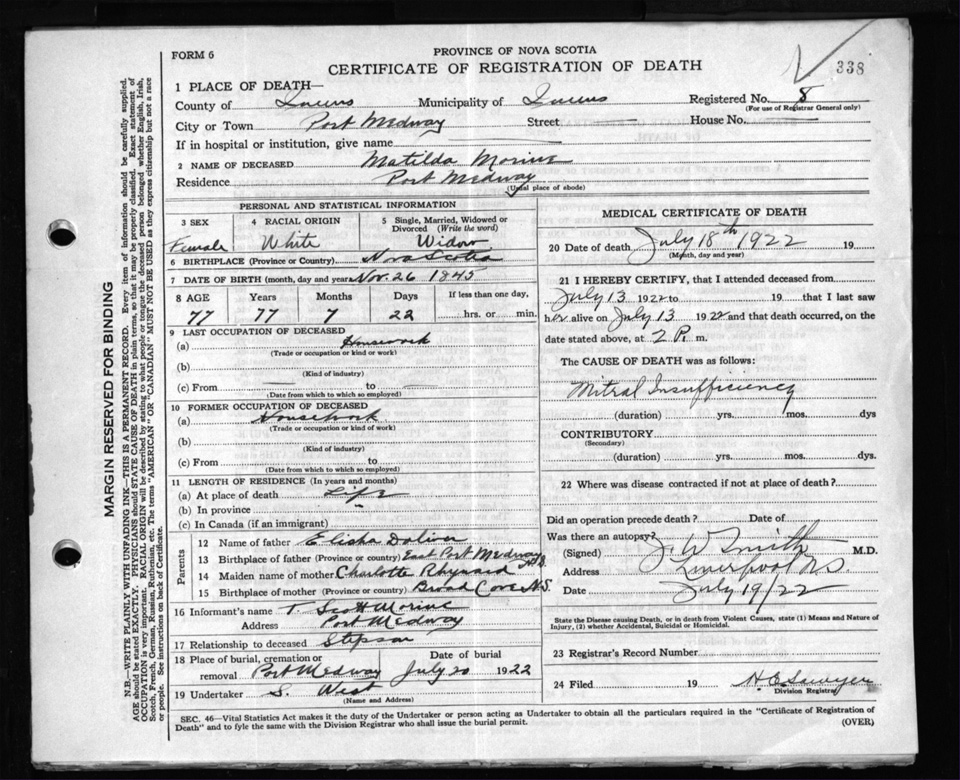 FORM 6
PROVINCE OF NOVA SCOTIA
CERTIFICATE OF REGISTRATION OF DEATH
338
1 PLACE OF DEATH—
County of Queens Municipality of Queens Registered No. 8
(For use of Registrar General only)
City or Town Port Medway Street — House No. —
If in hospital or institution, give name —
2 NAME OF DECEASED Matilda Morine
Residence Port Medway
(Usual place of abode)
PERSONAL AND STATISTICAL INFORMATION
3 SEX 4 RACIAL ORIGIN 5 Single, Married, Widowed or Divorced (Write the word)
Female White Widow
6 BIRTHPLACE (Province or Country) Nova Scotia
7 DATE OF BIRTH (month, day and year) Nov. 26 1845
8 AGE Years Months Days If less than one day,
77 77 7 22 hrs. or min.
9 LAST OCCUPATION OF DECEASED
(a) Housework
(Trade or occupation or kind of work)
(b)
(Kind of industry)
(c) From — to —
(Date from which to which so employed)
10 FORMER OCCUPATION OF DECEASED
(a) Housework
(Trade or occupation or kind of work)
(b)
(Kind of industry)
(c) From to
(Date from which to which so employed)
11 LENGTH OF RESIDENCE (In years and months)
(a) At place of death Life
(b) In province
(c) In Canada (if an immigrant)
Parents
12 Name of father Elisha Doliver
13 Birthplace of father (Province or country) East Port Medway N.S.
14 Maiden name of mother Charlotte Rhynard
15 Birthplace of mother (Province or country) Broad Cove N.S.
16 Informant's name T. Scott Morine
Address Port Medway
17 Relationship to deceased Stepson
18 Place of burial, cremation or removal Port Medway Date of burial July 20 1922
19 Undertaker S. West
(Name and Address)
MEDICAL CERTIFICATE OF DEATH
20 Date of death July 18th 1922 19
(Month, day and year)
21 I HEREBY CERTIFY, that I attended deceased from
July 13 1922 to 19 that I last saw
her alive on July 13 1922 and that death occurred, on the
date stated above, at 2 P. m.
The CAUSE OF DEATH was as follows:
Mitral Insufficiency
(duration) yrs. mos. dys
CONTRIBUTORY
(Secondary)
(duration) yrs. mos. dys.
22 Where was disease contracted if not at place of death?
Did an operation precede death? Date of
Was there an autopsy?
(Signed) J. W Smith M.D.
Address Liverpool N.S
Date July 19/22
State the Disease causing Death, or in death from Violent Causes, state (1) Means and Nature of
Injury, (2) whether Accidental, Suicidal or Homicidal.
23 Registrar's Record Number
24 Filed 19 H.E. Sawyer
Division Registrar
SEC. 46—Vital Statistics Act makes it the duty of the Undertaker or person acting as Undertaker to obtain all the particulars required in the "Certificate of Registration of
Death" and to fyle the same with the Division Registrar who shall issue the burial permit.
(OVER)
MARGIN RESERVED FOR BINDING
N.B.—WRITE PLAINLY WITH UNFADING INK—THIS IS A PERMANENT RECORD. Every item of information should be carefully supplied.
AGE should be stated EXACTLY. PHYSICIANS should STATE CAUSE OF DEATH in plain terms, so that it may be properly classified. Exact statement of
OCCUPATION is very important. RACIAL ORIGIN will be described by stating to what people or tongue the deceased person belonged whether English, Irish,
Scotch, French, German, Russian, Ruthenian, etc. The terms "AMERICAN" or "CANADIAN" MUST NOT BE USED as they express citizenship but not a race
or people. See instructions on back of Certificate.